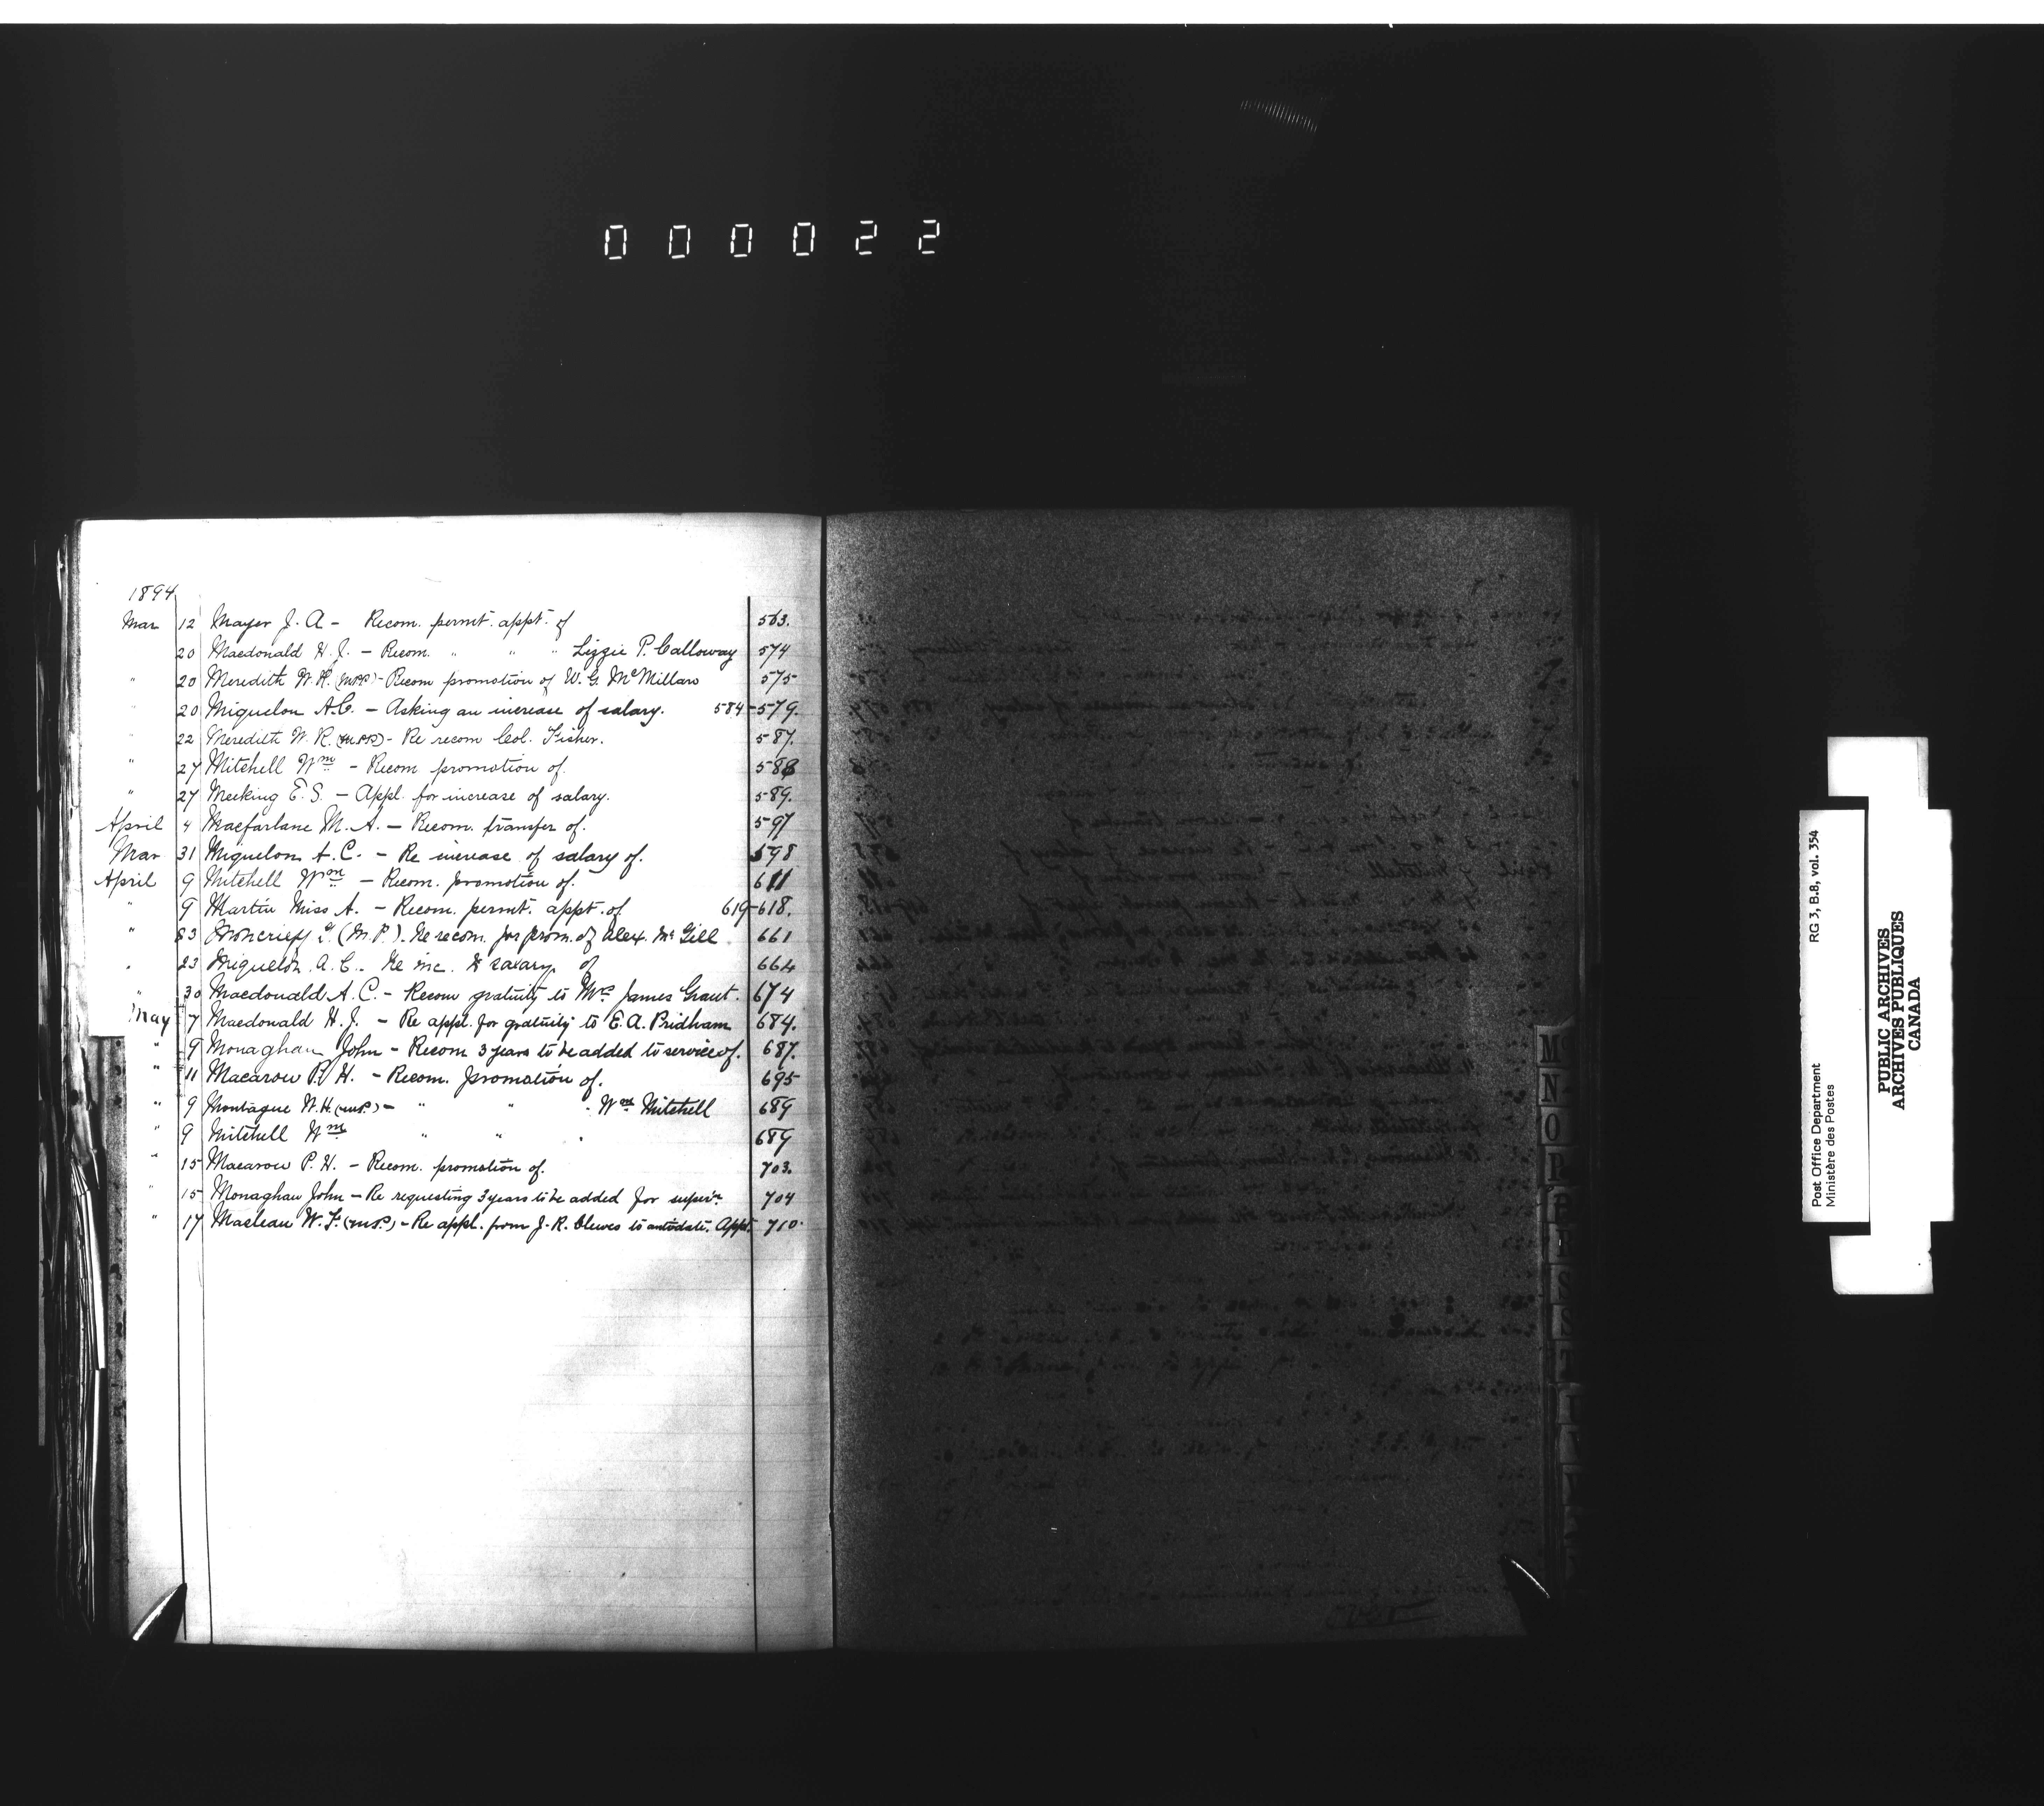 000022
1894
Mar 12 Mayer J. A - Recom. permt. appt. of 563.
20 Macdonald H. J. - Recom. " " " Lizzie P. Calloway 574
" 20 Meredith W. R. (MPP) - Recom promotion of W. G. McMillan 575
" 20 Miquelon A.C. - Asking an increase of salary. 584-579.
" 22 Meredith W. R. (MPP) - Re recom Col. Fisher. 587.
" 27 Mitchell Wm - Recom promotion of. 588
" 27 Meeking E. S. - Appl. for increase of salary. 589.
April 4 Macfarlane M. A. - Recom. transfer of. 597
Mar 31 Miquelon A. C. - Re increase of salary of. 598
April 9 Mitchell Wm - Recom. promotion of. 611
" 9 Martin Miss A. - Recom. permt. appt. of 619-618.
" 23 Moncrieff G. (M.P.). Re recom. for prom. of Alex. McGill 661
" 23 Miquelon A. C. - Re inc. of salary of 664
" 30 Macdonald A. C. - Recom gratuity to Mrs James Grant. 674
May 7 Macdonald H. J. - Re appl. for gratuity to E. A. Pridham 684.
" 9 Monaghan John - Recom 3 years to be added to service of. 687.
" 11 Macarow P. H. - Recom. promotion of. 695
" 9 Montague W. H. (M.P.) - " " " Wm Mitchell 689
" 9 Mitchell Wm " " " 689
" 15 Macarow P. H. - Recom. promotion of. 703.
" 15 Monaghan John - Re requesting 3 years to be added for superan. 704
" 17 Maclean W. F. (M.P.) - Re appl. from J. R. Clewes to antedate. Appt. 710.
over
M
N
O
P
R
S
T
Post Office Department RG 3, B.8, vol. 354
Ministère des Postes
PUBLIC ARCHIVES
ARCHIVES PUBLIQUES
CANADA